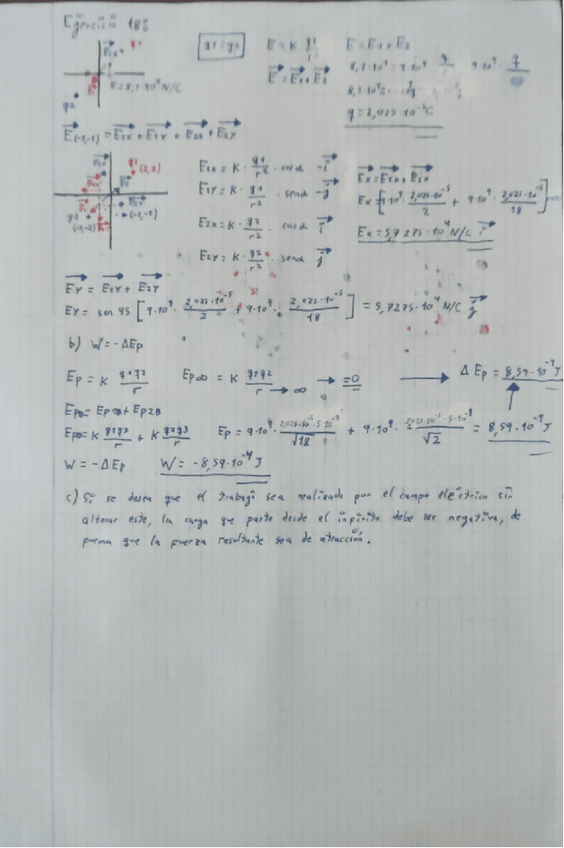 Ejercicio 18b
q1 = q2
E = K q1/r² E = E1 + E2
E = 8,1·10⁴ N/C
E = E1 + E2
q = 2,025·10⁻⁵C
E(-1,-1) = E1X + E1Y + E2X + E2Y
q1 (2,2)
q2 (-2,-2) (-1,-1)
E1X = K · q1/r² · cosα -i
E1Y = K · q1/r² · senα -j
E2X = K · q2/r² · cosα i
E2Y = K · q2/r² · senα j
Ex = E1X + E2X
Ex = 5,7275·10⁴ N/C i
EY = E1Y + E2Y
EY = sen 45 [9·10⁹ · 2,025·10⁻⁵/2 + 9·10⁹ · 2,025·10⁻⁵/18] = 5,7275·10⁴ N/C j
b) W = -ΔEp
Ep = K q1q2/r Ep∞ = K q1q2/r→∞ → =0 → ΔEp = 8,59·10⁻⁴J
EpB = Ep1B + Ep2B
EpB = K q1q3/r + K q2q3/r Ep = 9·10⁹ · 2,025·10⁻⁵·5·10⁻⁹/√18 + 9·10⁹ · 2,025·10⁻⁵·5·10⁻⁹/√2 = 8,59·10⁻⁴J
W = -ΔEp W = -8,59·10⁻⁴ J
c) Si se desea que el trabajo sea realizado por el campo eléctrico sin
alterar este, la carga que parte desde el infinito debe ser negativa, de
forma que la fuerza resultante sea de atracción.